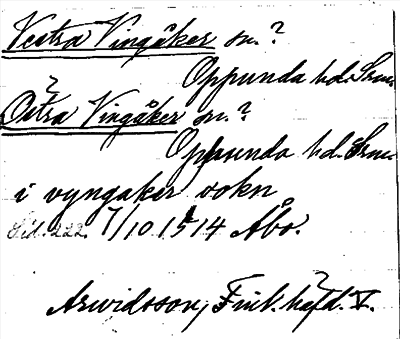 Vestra Vingåker sn.?
Oppunda hd. Srm.
Östra Vingåker sn.?
Oppunda hd. Srm.
i vyngaker sokn
Sid. 222. 7/10 1514 Åbo.
Arwidsson, Finl. häfd. V.